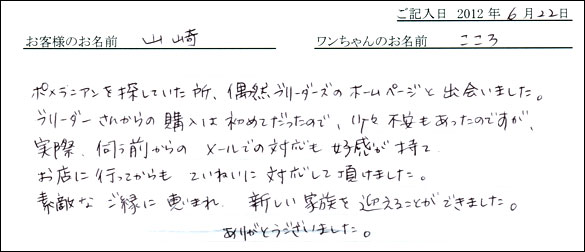 ご記入日 2012年6月22日
お客様のお名前 山崎 ワンちゃんのお名前 こころ
ポメラニアンを探していた所、偶然ブリーダーズのホームページと出会いました。
ブリーダーさんからの購入は初めてだったので、少々不安もあったのですが、
実際、伺う前からのメールでの対応も好感が持て
お店に行ってからもていねいに対応して頂けました。
素敵なご縁に恵まれ、新しい家族を迎えることができました。
ありがとうございました。